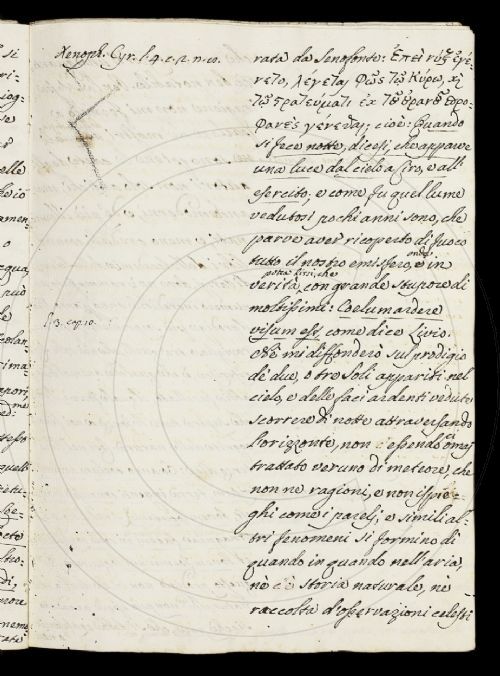 Xenoph. Cyr. l. 4. c. 2. n. 10.
rata da Senofonte: Ἐπεὶ νὺξ ἐγέ-
νετο, λέγεται φῶς τῷ Κύρῳ, καὶ
τῷ στρατεύματι ἐκ τοῦ οὐρανοῦ προ-
φανὲς γένεσθαι; cioè: Quando
si fece notte, dicesi, che apparve
una luce dal cielo a Ciro, e all'
esercito, e come fu quel lume
vedutosi pochi anni sono, che
parve aver ricoperto di fuoco
tutto il nostro emisfero, onde in
potea dirsi, che
verità, con grande stupore di
moltissimi: Coelum ardere
l. 3. cap. 10.
visum est, come dice Livio.
Nè mi diffonderò sul prodigio
de' due, o tre Soli appariti nel
cielo, e delle faci ardenti vedute
scorrere di notte attraversando
l'orizzonte, non essendo omai
trattato veruno di meteore, che
non ne ragioni, e non ispie-
ghi come i parelj, e simili al-
tri fenomeni si formino di
quando in quando nell'aria,
nè storia naturale, nè
raccolta d'osservazioni celesti